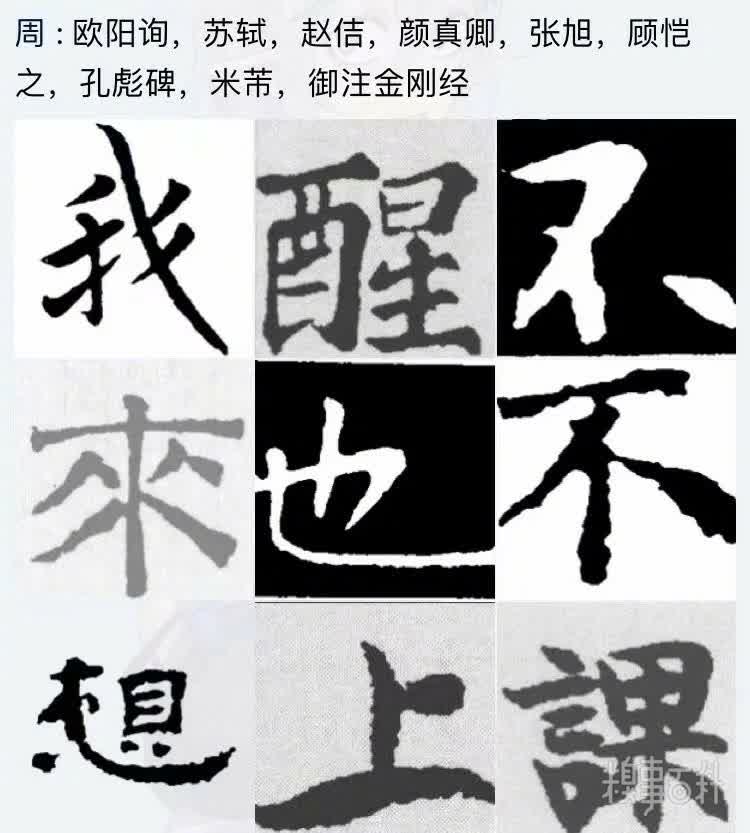 周 : 欧阳询，苏轼，赵佶，颜真卿，张旭，顾恺
之，孔彪碑，米芾，御注金刚经
我醒不
來也不
想上課
糗事百科